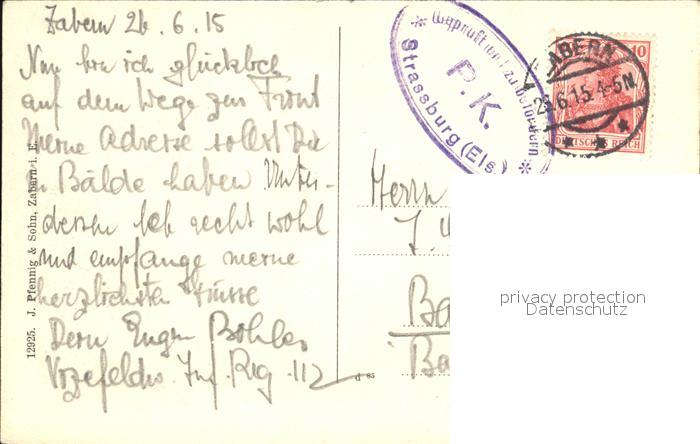 Zabern 26.6.15
Nun bin ich glücklich
auf dem Wege zur Front
Meine Adresse sollst Du
in Bälde haben Unter-
dessen leb recht wohl
und empfange meine
herzlichsten Grüsse
Dein Eugen Bohler
Vizefeldw. Inf. Reg. 112
12925. J. Pfennig & Sohn, Zabern i. E.
Geprüft und zu befördern
P. K.
Strassburg (Els.)
ZABERN
26.6.15.4-5N
10
DEUTSCHES REICH
Herrn
J.
Ba
Ba
d 85
privacy protection
Datenschutz